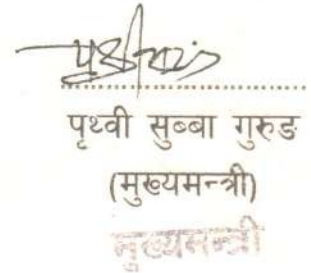 पृथ्वी सुब्बा गुरुङ
(मुख्यमन्त्री)
मुख्यमन्त्री